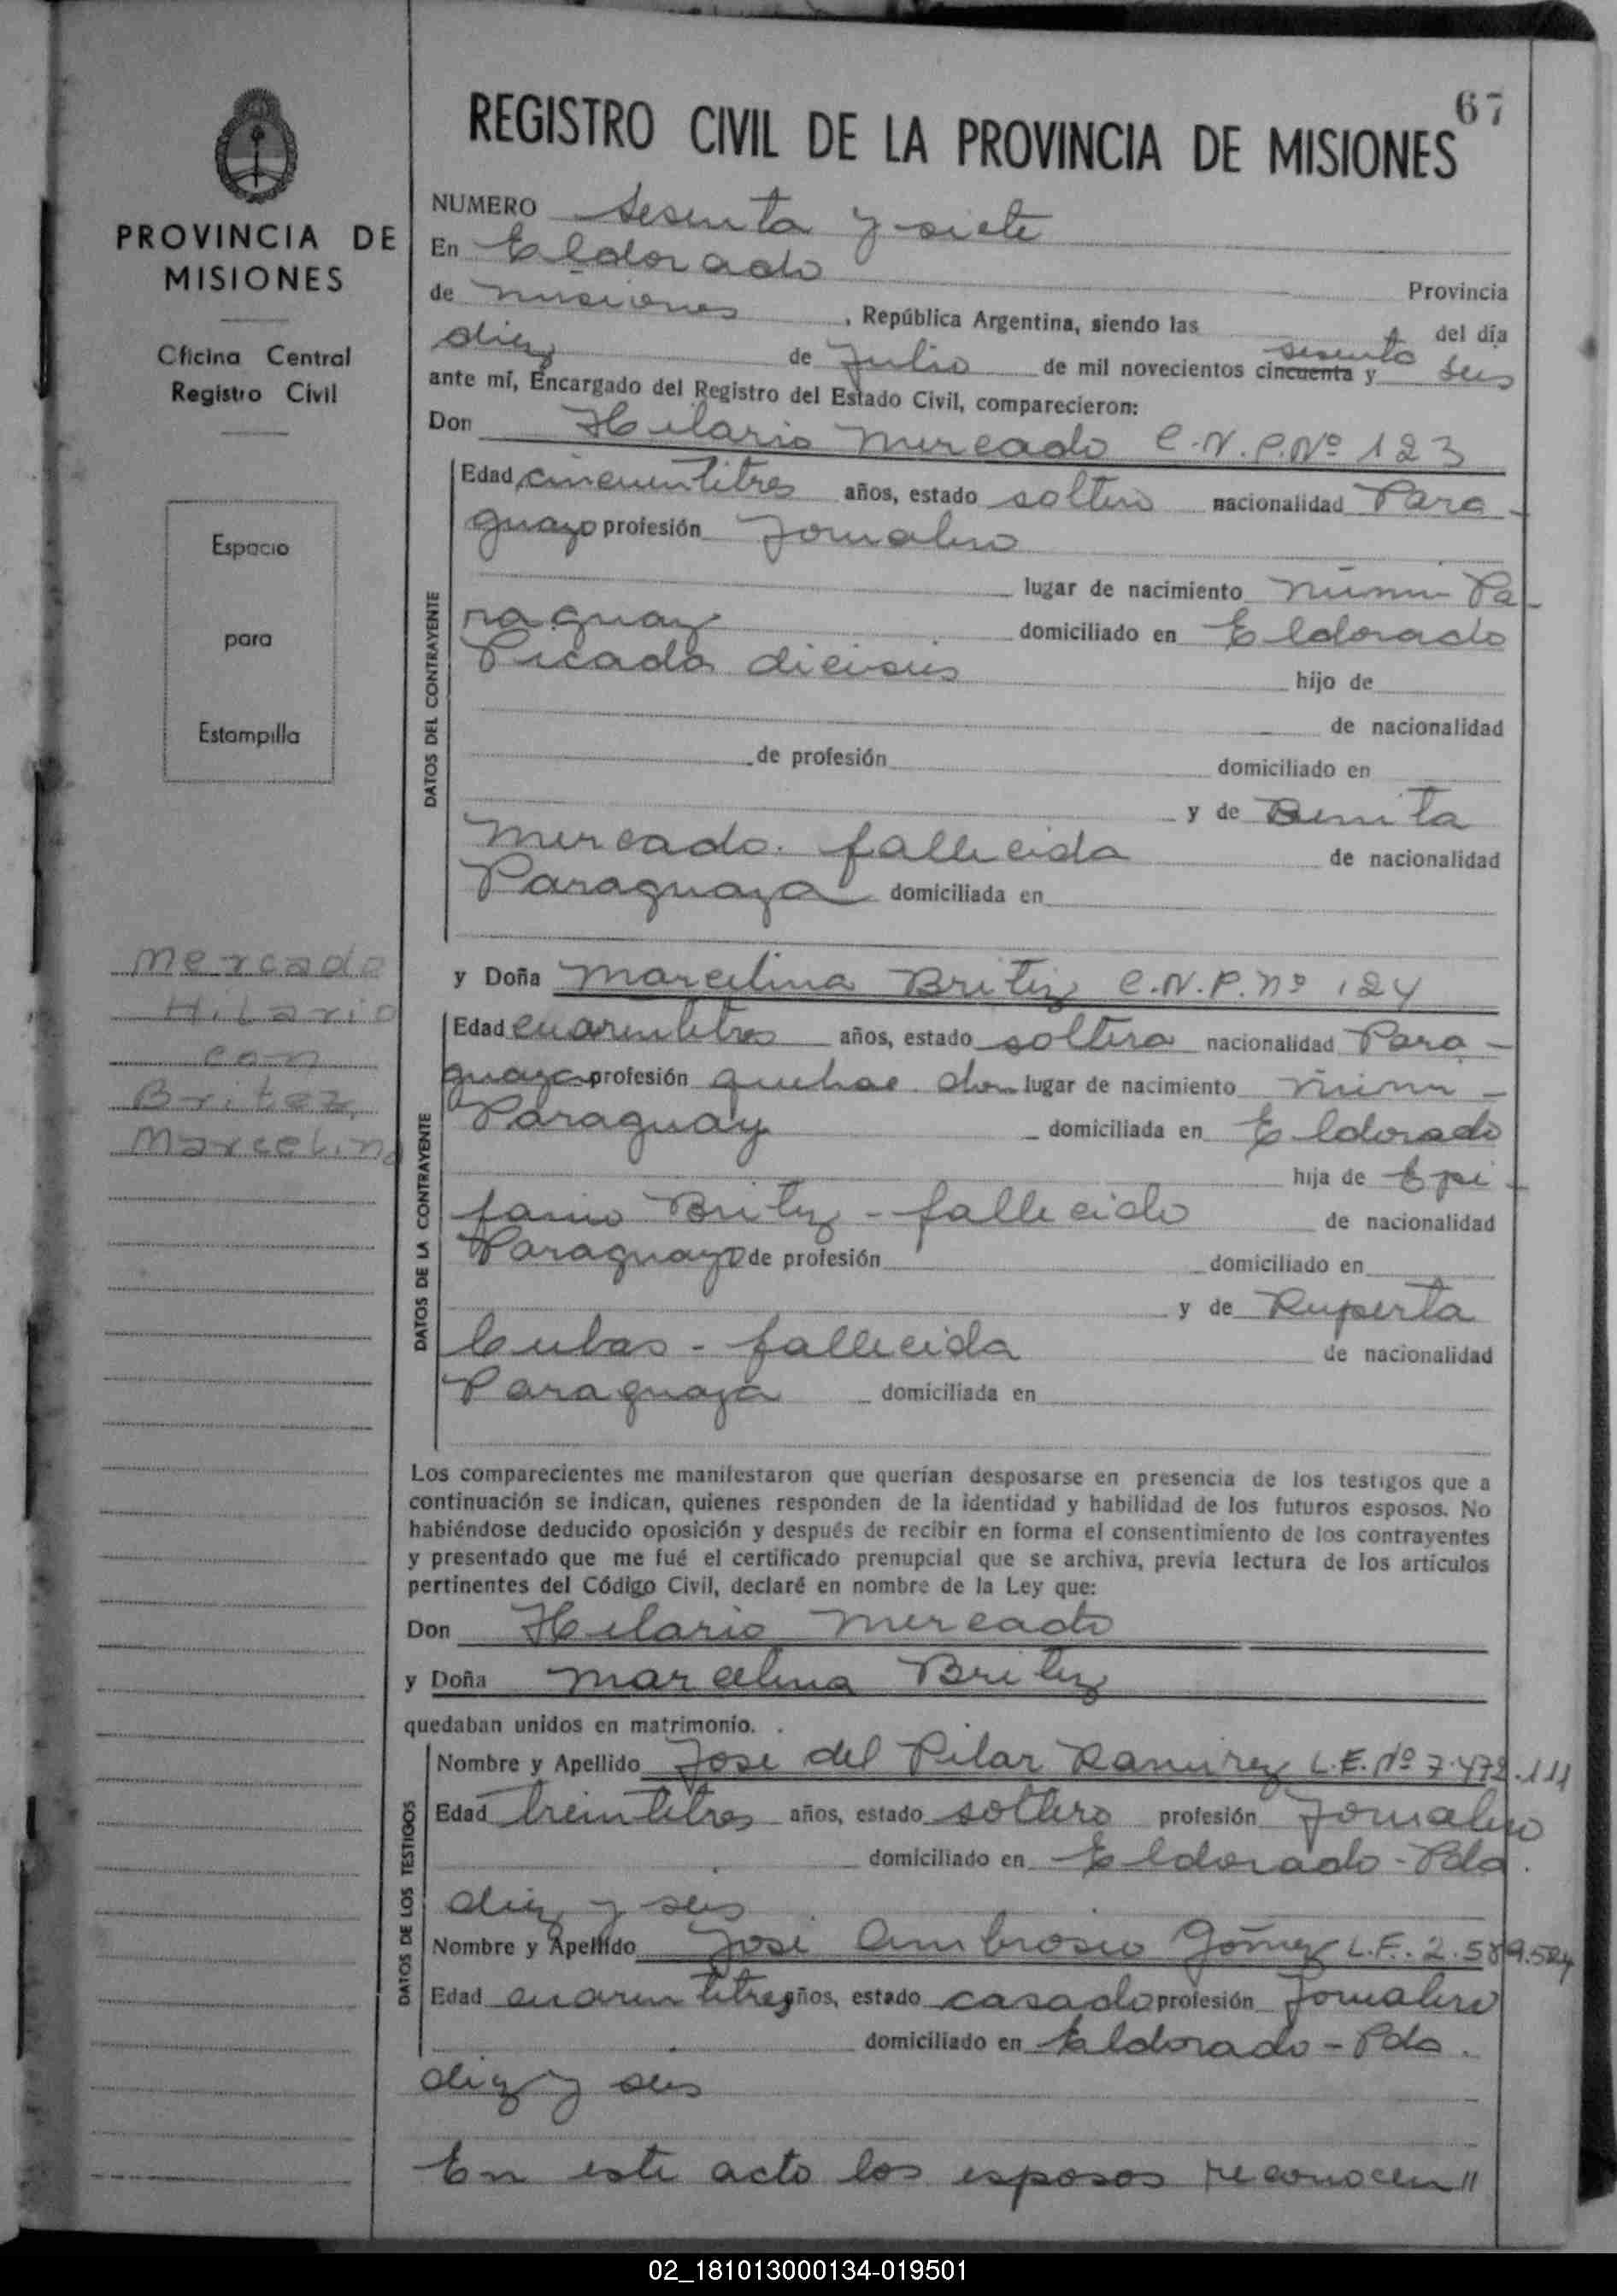 67
REGISTRO CIVIL DE LA PROVINCIA DE MISIONES
PROVINCIA DE
MISIONES
Oficina Central
Registro Civil
Espacio
para
Estampilla
Mercado
Hilario
con
Britez,
Marcelina
NUMERO sesenta y siete
En Eldorado
Provincia
de Misiones, República Argentina, siendo las del día
diez de Julio de mil novecientos cincuenta y sesenta y seis
ante mí, Encargado del Registro del Estado Civil, comparecieron:
Don Hilario Mercado C.N.P.Nº 123
DATOS DEL CONTRAYENTE
Edad cincuentitres años, estado soltero nacionalidad Para-
guayo profesión Jornalero
lugar de nacimiento Ñumi Pa-
raguay domiciliado en Eldorado
Picada dieciseis hijo de
de nacionalidad
de profesión domiciliado en
y de Benita
Mercado. fallecida de nacionalidad
Paraguaya domiciliada en
y Doña Marcelina Britez C.N.P. Nº 124
DATOS DE LA CONTRAYENTE
Edad cuarentitres años, estado soltera nacionalidad Para-
guaya profesión quehac. dom lugar de nacimiento Ñumi -
Paraguay domiciliada en Eldorado
hija de Epi-
fanio Britez - fallecido de nacionalidad
Paraguayo de profesión domiciliado en
y de Ruperta
Cubas - fallecida de nacionalidad
Paraguaya domiciliada en
Los comparecientes me manifestaron que querían desposarse en presencia de los testigos que a
continuación se indican, quienes responden de la identidad y habilidad de los futuros esposos. No
habiéndose deducido oposición y después de recibir en forma el consentimiento de los contrayentes
y presentado que me fué el certificado prenupcial que se archiva, previa lectura de los artículos
pertinentes del Código Civil, declaré en nombre de la Ley que:
Don Hilario Mercado
y Doña Marcelina Britez
quedaban unidos en matrimonio.
DATOS DE LOS TESTIGOS
Nombre y Apellido José del Pilar Ramirez L.E. Nº 7.472.111
Edad treintitres años, estado soltero profesión Jornalero
domiciliado en Eldorado - Pda.
diez y seis
Nombre y Apellido José Ambrosio Gómez L.E. 2.589.524
Edad cuarentitres años, estado casado profesión Jornalero
domiciliado en Eldorado - Pda.
diez y seis
En este acto los esposos reconocen //
02_181013000134-019501